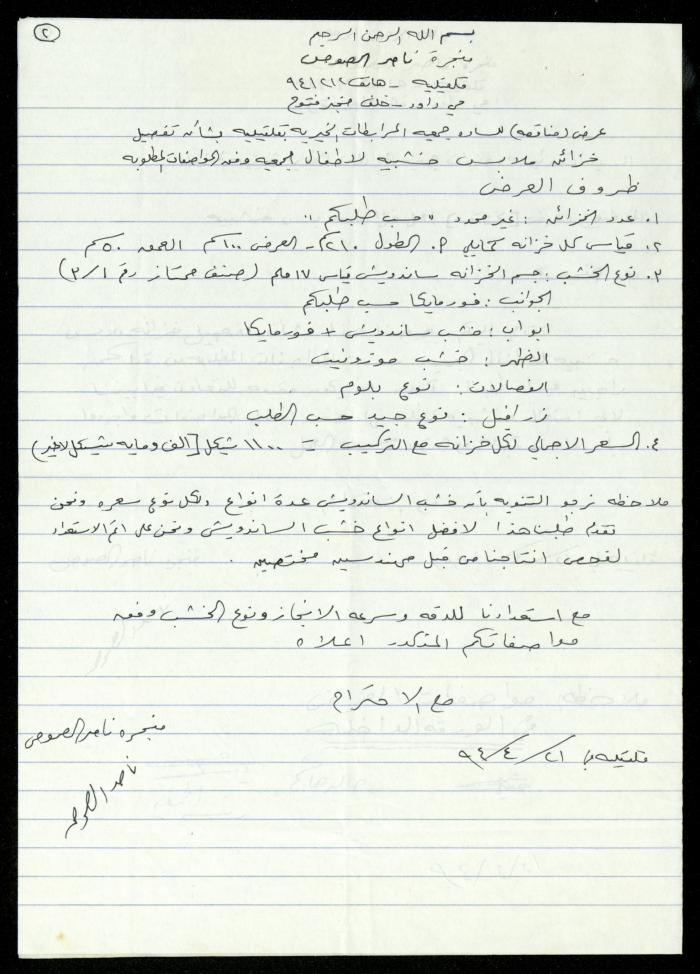 ٢
بسم الله الرحمن الرحيم
منجرة ناصر الصوص
قلقيليه - هاتف ٩٤١٢١٢
حي داود - خلف مخبز فتوح
عرض (مناقصه) للساده جمعيه المرابطات الخيريه بقلقيليه بشأن تفصيل
خزائن ملابس خشبيه لاطفال الجمعيه وفق المواصفات المطلوبه
ظروف العرض
١. عدد الخزائن : غير محدد " حسب طلبكم "
٢. قياس كل خزانه كمايلي : الطول ٢١٠سم - العرض ١٠٠سم العمق ٥٠سم
٣. نوع الخشب : جسم الخزانه ساندويش قياس ١٧ ملم (صنف ممتاز رقم ٣/١)
الجوانب : فورمايكا حسب طلبكم
ابواب : خشب ساندويش + فورمايكا
الظهر : خشب موزونيت
الفصالات : نوع بلوم
زرافيل : نوع جيد حسب الطلب
٤. السعر الاجمالي لكل خزانه مع التركيب = ١١٠٠ شيكل [الف ومايه شيكل لاغير)
ملاحظه نرجو التنويه بأن خشب الساندويش عدة انواع ولكل نوع سعره ونحن
نقدم طلبنا هذا لافضل انواع خشب الساندويش ونحن على اتم الاستعداد
لفحص انتاجنا من قبل مهندسين مختصين .
مع استعدادنا للدقه وسرعه الانجاز ونوع الخشب وفق
مواصفاتكم المذكور اعلاه
مع الاحترام
منجره ناصر الصوص
قلقيليه في ٢١/٤/٩٤
ناصر الصوص